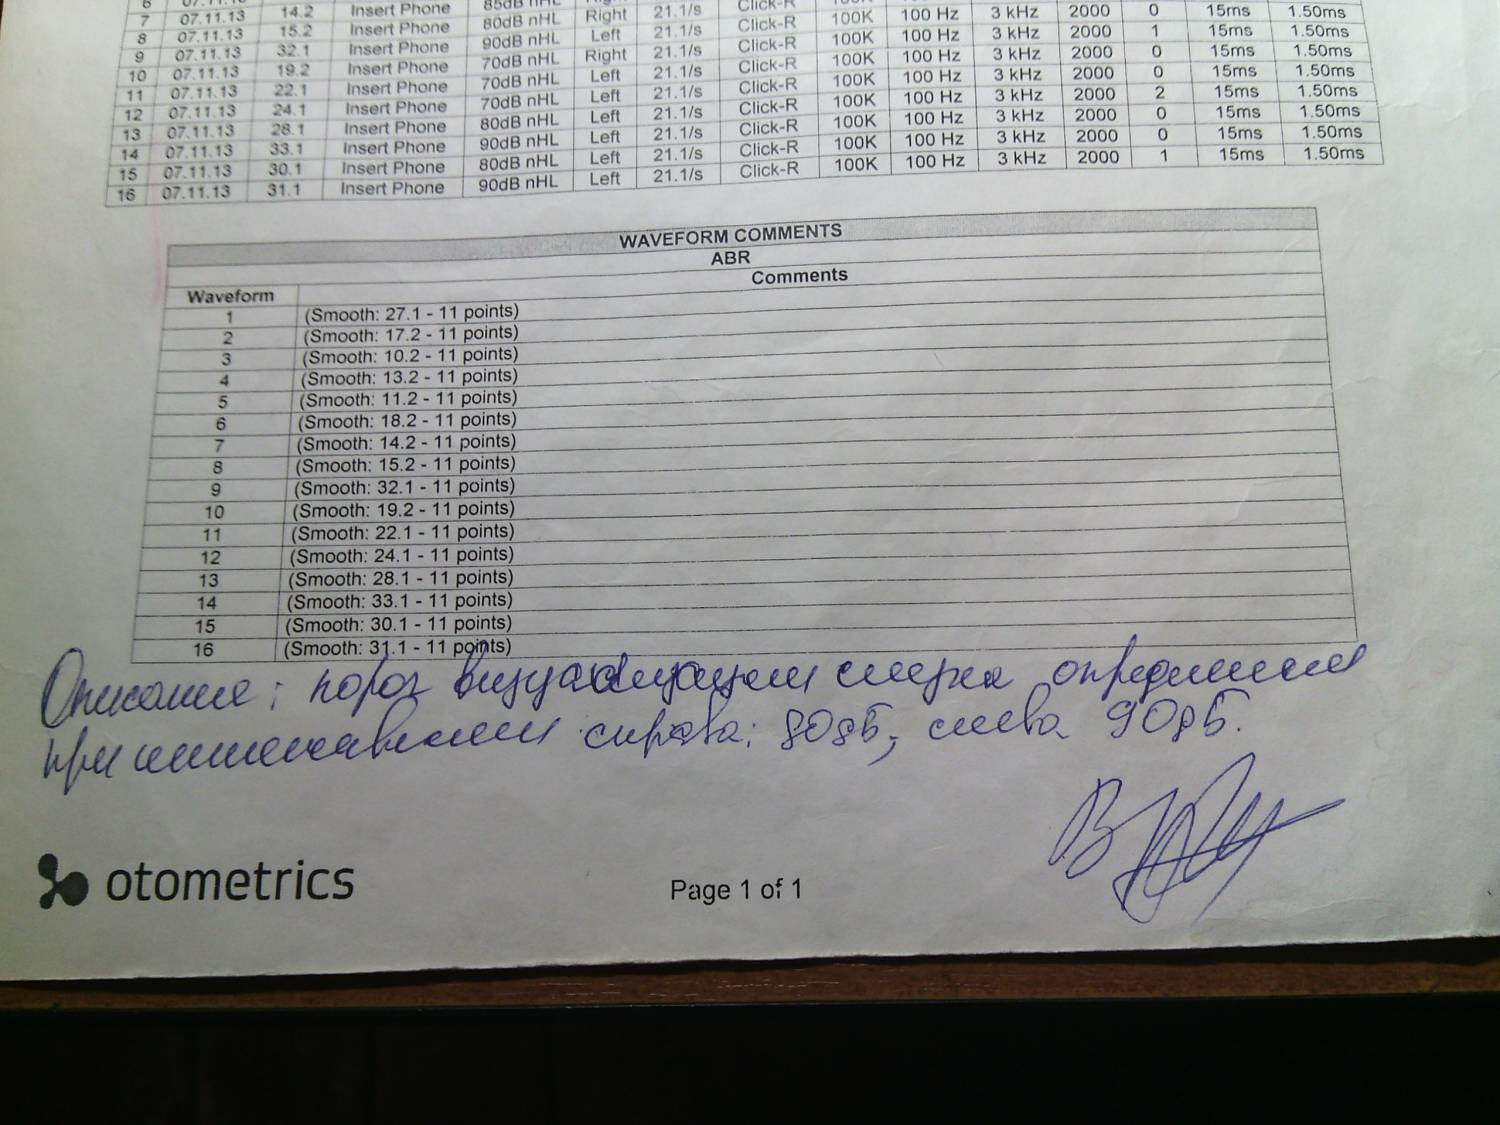 7 07.11.13 14.2 Insert Phone 85dB nHL
8 07.11.13 15.2 Insert Phone 80dB nHL Right 21.1/s Click-R 100K
9 07.11.13 32.1 Insert Phone 90dB nHL Left 21.1/s Click-R 100K 100 Hz 3 kHz 2000 0 15ms 1.50ms
10 07.11.13 19.2 Insert Phone 70dB nHL Right 21.1/s Click-R 100K 100 Hz 3 kHz 2000 1 15ms 1.50ms
11 07.11.13 22.1 Insert Phone 70dB nHL Left 21.1/s Click-R 100K 100 Hz 3 kHz 2000 0 15ms 1.50ms
12 07.11.13 24.1 Insert Phone 70dB nHL Left 21.1/s Click-R 100K 100 Hz 3 kHz 2000 0 15ms 1.50ms
13 07.11.13 28.1 Insert Phone 80dB nHL Left 21.1/s Click-R 100K 100 Hz 3 kHz 2000 2 15ms 1.50ms
14 07.11.13 33.1 Insert Phone 90dB nHL Left 21.1/s Click-R 100K 100 Hz 3 kHz 2000 0 15ms 1.50ms
15 07.11.13 30.1 Insert Phone 80dB nHL Left 21.1/s Click-R 100K 100 Hz 3 kHz 2000 0 15ms 1.50ms
16 07.11.13 31.1 Insert Phone 90dB nHL Left 21.1/s Click-R 100K 100 Hz 3 kHz 2000 1 15ms 1.50ms
WAVEFORM COMMENTS
ABR
Waveform Comments
1 (Smooth: 27.1 - 11 points)
2 (Smooth: 17.2 - 11 points)
3 (Smooth: 10.2 - 11 points)
4 (Smooth: 13.2 - 11 points)
5 (Smooth: 11.2 - 11 points)
6 (Smooth: 18.2 - 11 points)
7 (Smooth: 14.2 - 11 points)
8 (Smooth: 15.2 - 11 points)
9 (Smooth: 32.1 - 11 points)
10 (Smooth: 19.2 - 11 points)
11 (Smooth: 22.1 - 11 points)
12 (Smooth: 24.1 - 11 points)
13 (Smooth: 28.1 - 11 points)
14 (Smooth: 33.1 - 11 points)
15 (Smooth: 30.1 - 11 points)
16 (Smooth: 31.1 - 11 points)
Описание: порог визуализации слуха определили
при справа: 80дБ, слева 90дБ.
otometrics
Page 1 of 1